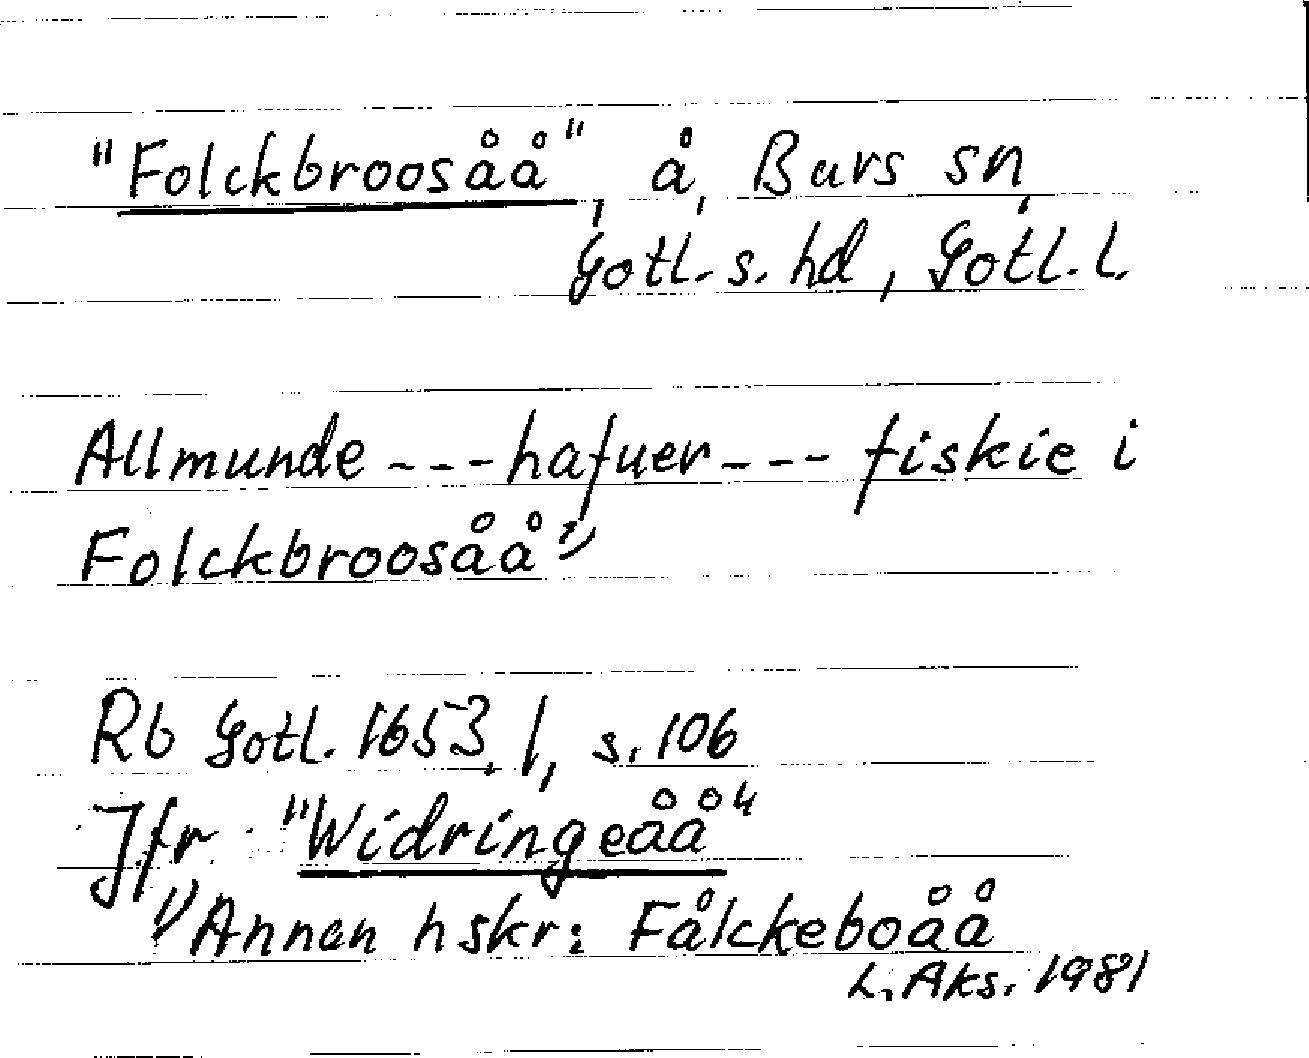 "Folckbroosåå", å, Burs sn,
Gotl. s. hd, Gotl. l.
Allmunde --- hafuer --- fiskie i
Folckbroosåå ¹⁾
Rb Gotl. 1653. 1, s. 106
Jfr "Widringeåå"
¹⁾ Annan hskr: Fålckeboåå
L. Aks. 1981